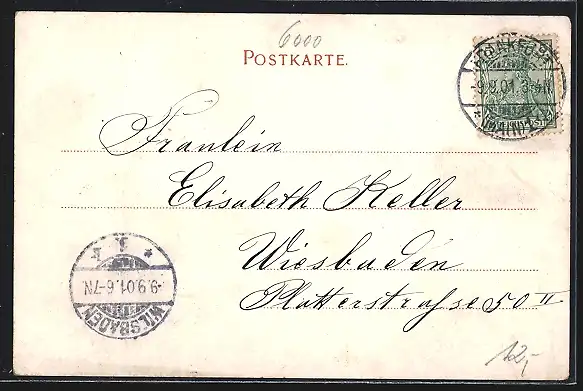 6000
POSTKARTE.
9.9.01. 3-4N
Fraulein
Elisabeth Keller
Wiesbaden
Platterstrasse 50 II
* 1. f
-9.9.01.6-7N.
WIESBADEN
12,-